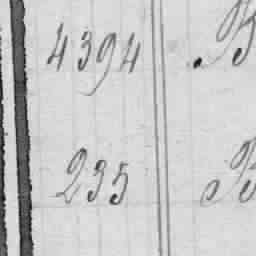 4394 B
235 B